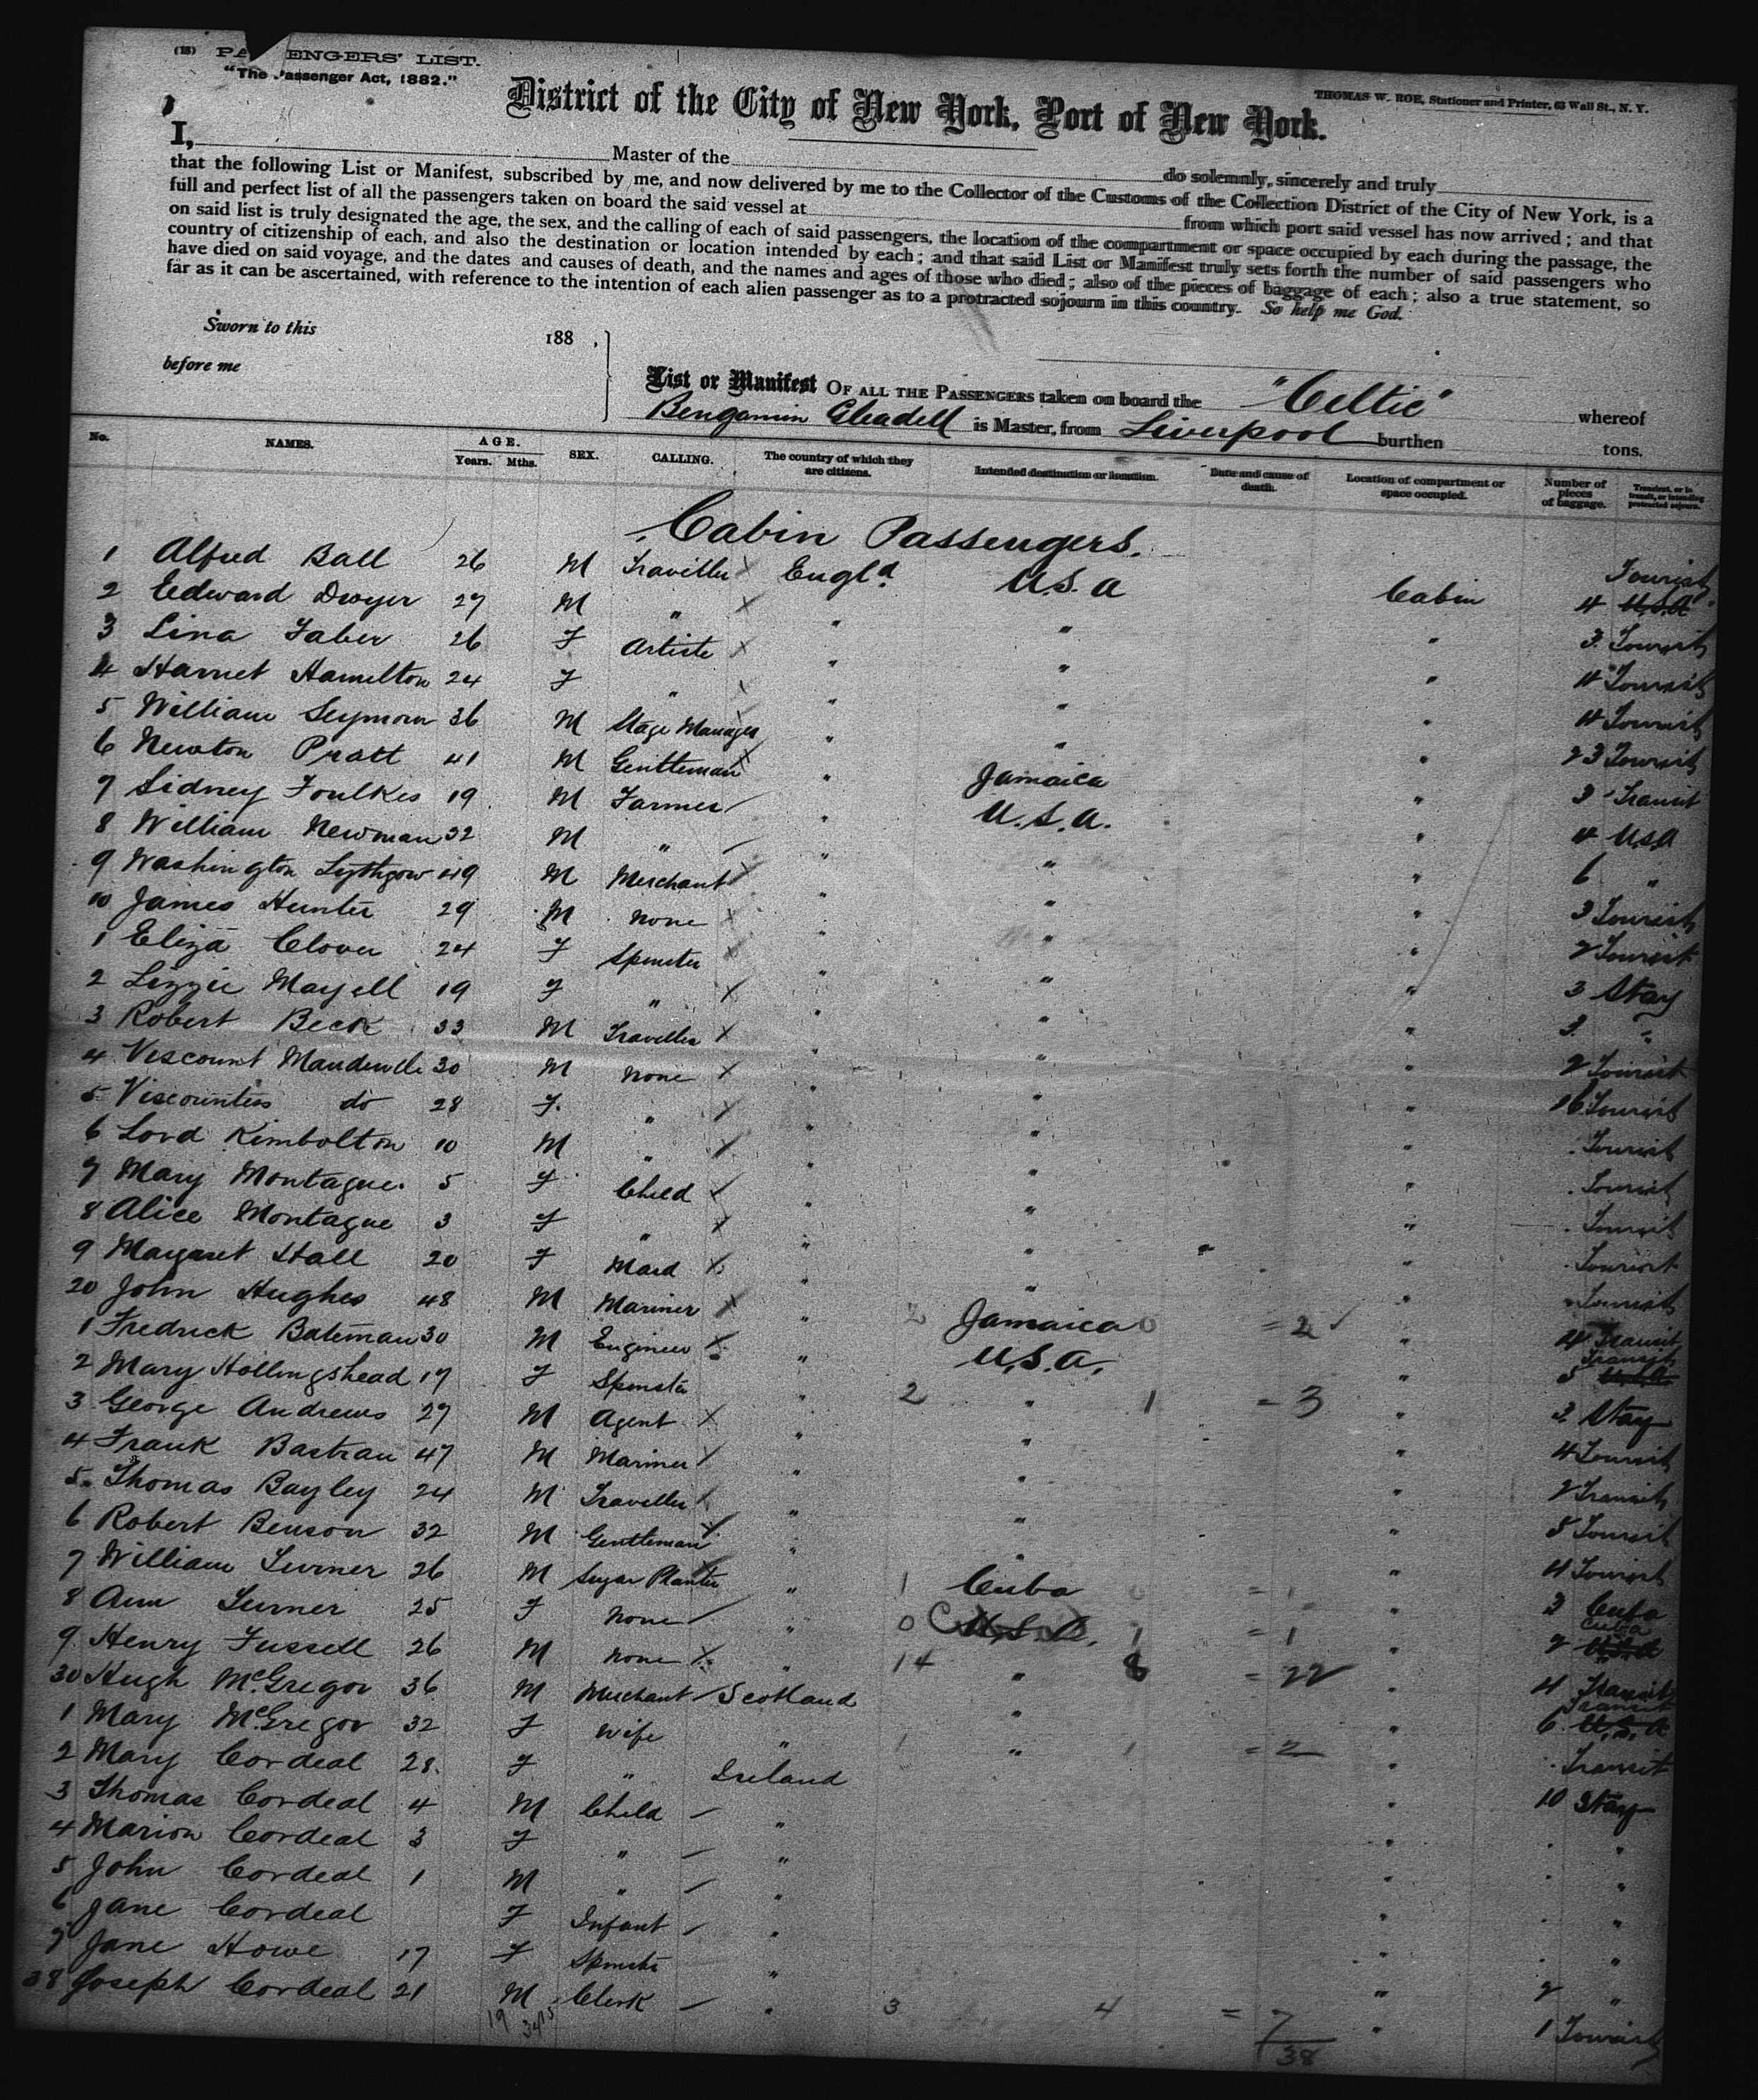 (18) PA ENGERS' LIST.
"The Passenger Act, 1882."
THOMAS W. ROE, Stationer and Printer, 63 Wall St., N. Y.
District of the City of New York, Port of New York.
I, Master of the do solemnly, sincerely and truly
that the following List or Manifest, subscribed by me, and now delivered by me to the Collector of the Customs of the Collection District of the City of New York, is a
full and perfect list of all the passengers taken on board the said vessel at from which port said vessel has now arrived; and that
on said list is truly designated the age, the sex, and the calling of each of said passengers, the location of the compartment or space occupied by each during the passage, the
country of citizenship of each, and also the destination or location intended by each; and that said List or Manifest truly sets forth the number of said passengers who
have died on said voyage, and the dates and causes of death, and the names and ages of those who died; also of the pieces of baggage of each; also a true statement, so
far as it can be ascertained, with reference to the intention of each alien passenger as to a protracted sojourn in this country. So help me God.
Sworn to this 188 .
before me
List or Manifest OF ALL THE PASSENGERS taken on board the "Celtic" whereof
Bengamin Gleadell is Master, from Liverpool burthen tons.
No. NAMES. AGE. Years. Mths. SEX. CALLING. The country of which they are citizens. Intended destination or location. Date and cause of death. Location of compartment or space occupied. Number of pieces of baggage. Transient, or in transit, or intending protracted sojourn.
Cabin Passengers.
1 Alfred Ball 26 M Traveller Engld U.S.A Cabin 4 Tourist U.S.A
2 Edward Dwyer 27 M " " " " 3 Tourist
3 Lina Faber 26 F Artiste " " " 4 Tourist
4 Harriet Hamilton 24 F " " " " 4 Tourist
5 William Seymour 36 M Stage Manager " " " 23 Tourist
6 Newton Pratt 41 M Gentleman " Jamaica " 3 Transit
7 Sidney Foulkes 19 M Farmer " U.S.A. " 4 U.S.A
8 William Newman 32 M " " " " 6 "
9 Washington Lythgow 49 M Merchant " " " 3 Tourist
10 James Hunter 29 M None " " " 2 Tourist
1 Eliza Clover 24 F Spinster " " " 3 Stay
2 Lizzie Mayell 19 F " " " " 3. "
3 Robert Beck 33 M Traveller " " " 2 Tourist
4 Viscount Mandeville 30 M None " " " 16 Tourist
5 Viscountess do 28 F. " " " " Tourist
6 Lord Kimbolton 10 M " " " " Tourist
7 Mary Montague. 5 F Child " " " Tourist
8 Alice Montague 3 F " " " " Tourist
9 Margaret Hall 20 F Maid " " " Tourist
20 John Hughes 48 M Mariner " 2 Jamaica 0 = 2 " 4 Transit
1 Fredrick Bateman 30 M Engineer " U.S.A. " 5 Transit U.S.A.
2 Mary Hollingshead 19 F Spinster " 2 " 1 = 3 " 3 Stay
3 George Andrews 27 M Agent " " " 4 Tourist
4 Frank Bastrau 47 M Mariner " " " 2 Transit
5 Thomas Bayley 24 M Traveller " " " 5 Tourist
6 Robert Benson 32 M Gentleman " " " 4 Tourist
7 William Turner 26 M Sugar Planter " 1 Cuba 0 = 1 " 3 Cuba
8 Ann Turner 25 F None " 0 U.S.A. 1 = 1 " 2 Cuba U.S.A
9 Henry Fussell 26 M None " 14 " 8 = 22 " 4 Transit
30 Hugh McGregor 36 M Merchant Scotland " " 6 Transit U.S.A
1 Mary McGregor 32 F Wife " 1 " 1 = 2 " Transit
2 Mary Cordeal 28. F " Ireland " 10 Stay
3 Thomas Cordeal 4 M Child " " "
4 Marion Cordeal 3 F " " " "
5 John Cordeal 1 M " " " "
6 Jane Cordeal F Infant " " "
7 Jane Howe 17 F Spinster " " 2 "
38 Joseph Cordeal 21 M Clerk " 3 4 = 7 " 1 Tourist
19 38